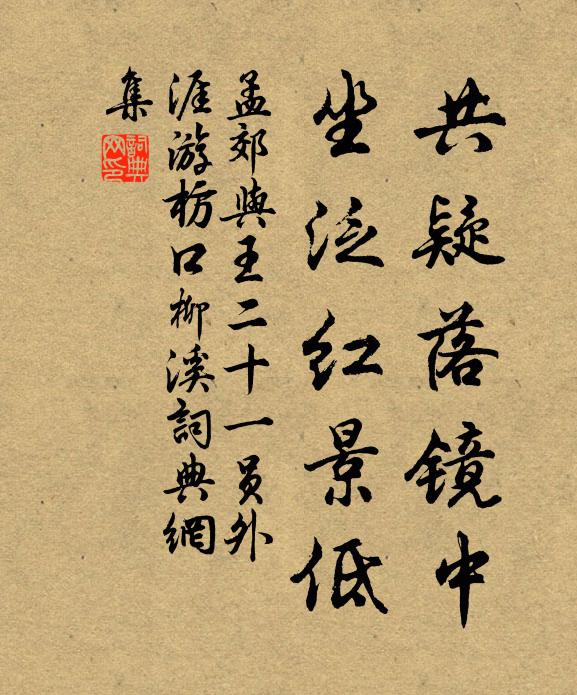 共疑落镜中
坐泛红景低
孟郊與王二十一员外
涯游枋口柳溪詞典網
集
詞典网印